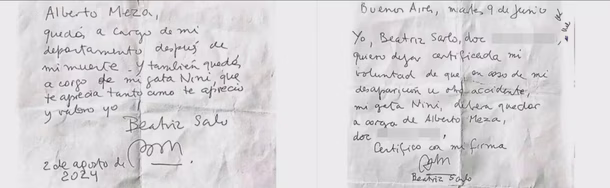 Alberto Meza,
quedás a cargo de mi
departamento después de
mi muerte. Y también quedás
a cargo de mi gata Niní, que
te aprecia tanto como te aprecio
y valoro yo
Beatriz Sarlo
2 de agosto de
2024
Buenos Aires, martes 9 de junio
Yo, Beatriz Sarlo, doc
quiero dejar certificada mi
voluntad de que, en caso de mi
desaparición u otro accidente,
mi gata Niní, deberá quedar
a cargo de Alberto Meza,
doc
Certifico con mi firma
Beatriz Sarlo